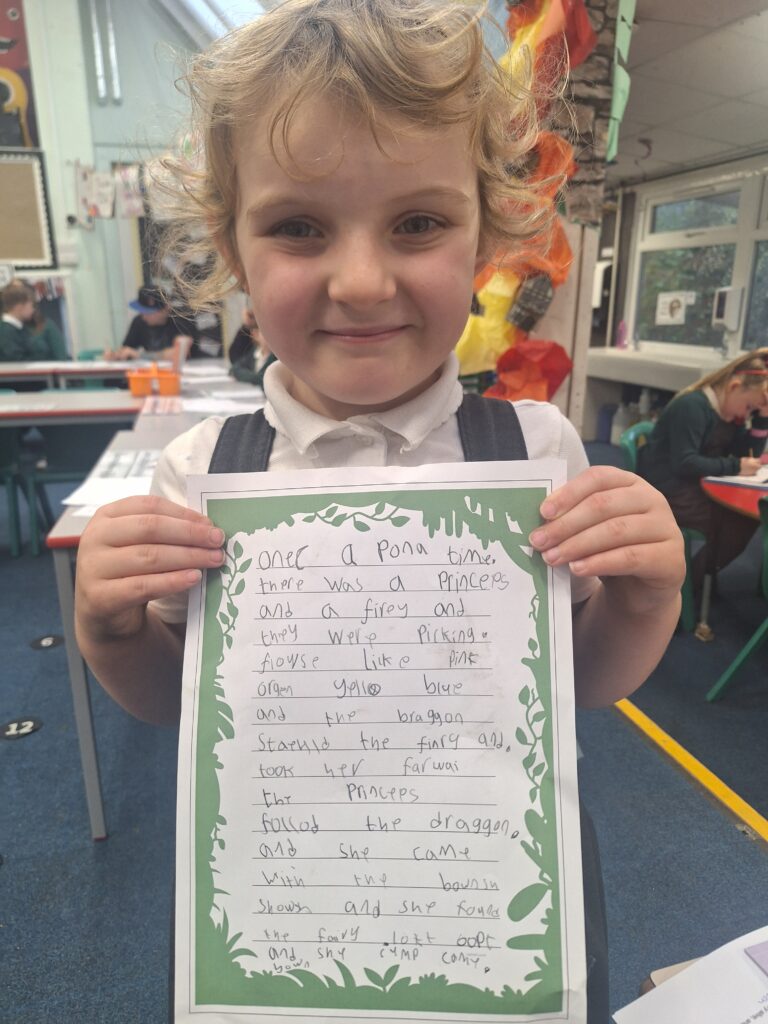 onec a pona time.
there was a Princeps
and a firey and
they were picking.
flowse like pink
orgen yello blue
and the braggon
staehld the finry and.
took her farwai
the princeps
follod the draggon.
and she came
with the
shown and she found
the fairy lokt oopt
and she cymp came.
bown
12